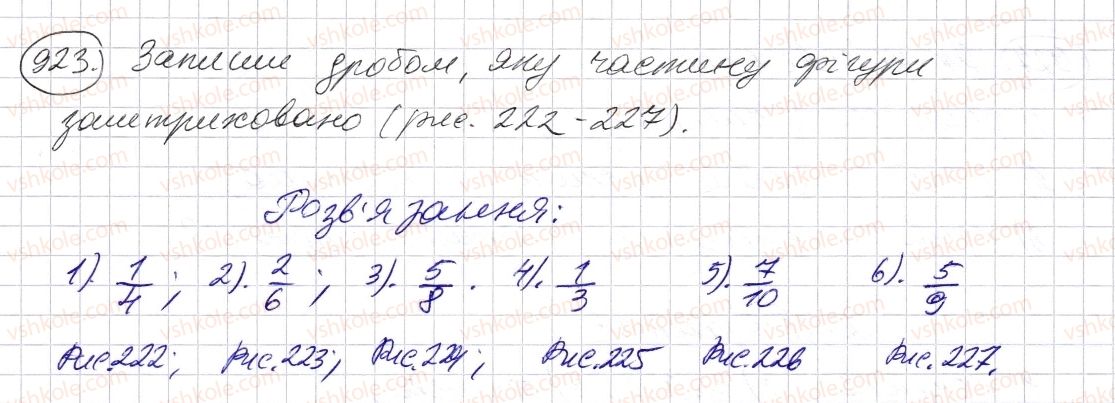 923. Запиши дробом, яку частину фігури
заштриховано (рис. 222-227).
Розв'язання:
1). 1/4 ; 2). 2/6 ; 3). 5/8 . 4). 1/3 5). 7/10 6). 5/9
Рис.222; Рис.223; Рис.224; Рис.225 Рис.226 Рис.227.